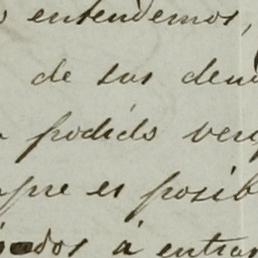 entendemos,
de sus deu
podido ver
pre es posib
ados á entra